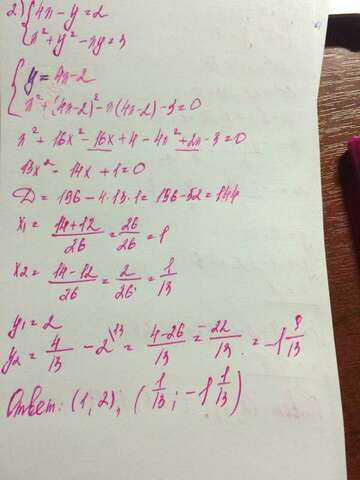 2) { 4x - y = 2
x² + y² - xy = 3
{ y = 4x - 2
x² + (4x-2)² - x(4x-2) - 3 = 0
x² + 16x² - 16x + 4 - 4x² + 2x - 3 = 0
13x² - 14x + 1 = 0
D = 196 - 4·13·1 = 196 - 52 = 144
x1 = 14+12/26 = 26/26 = 1
x2 = 14-12/26 = 2/26 = 1/13
y1 = 2
y2 = 4/13 - 2\13 = 4-26/13 = -22/13 = -1 9/13
Ответ: (1; 2), (1/13; -1 9/13)